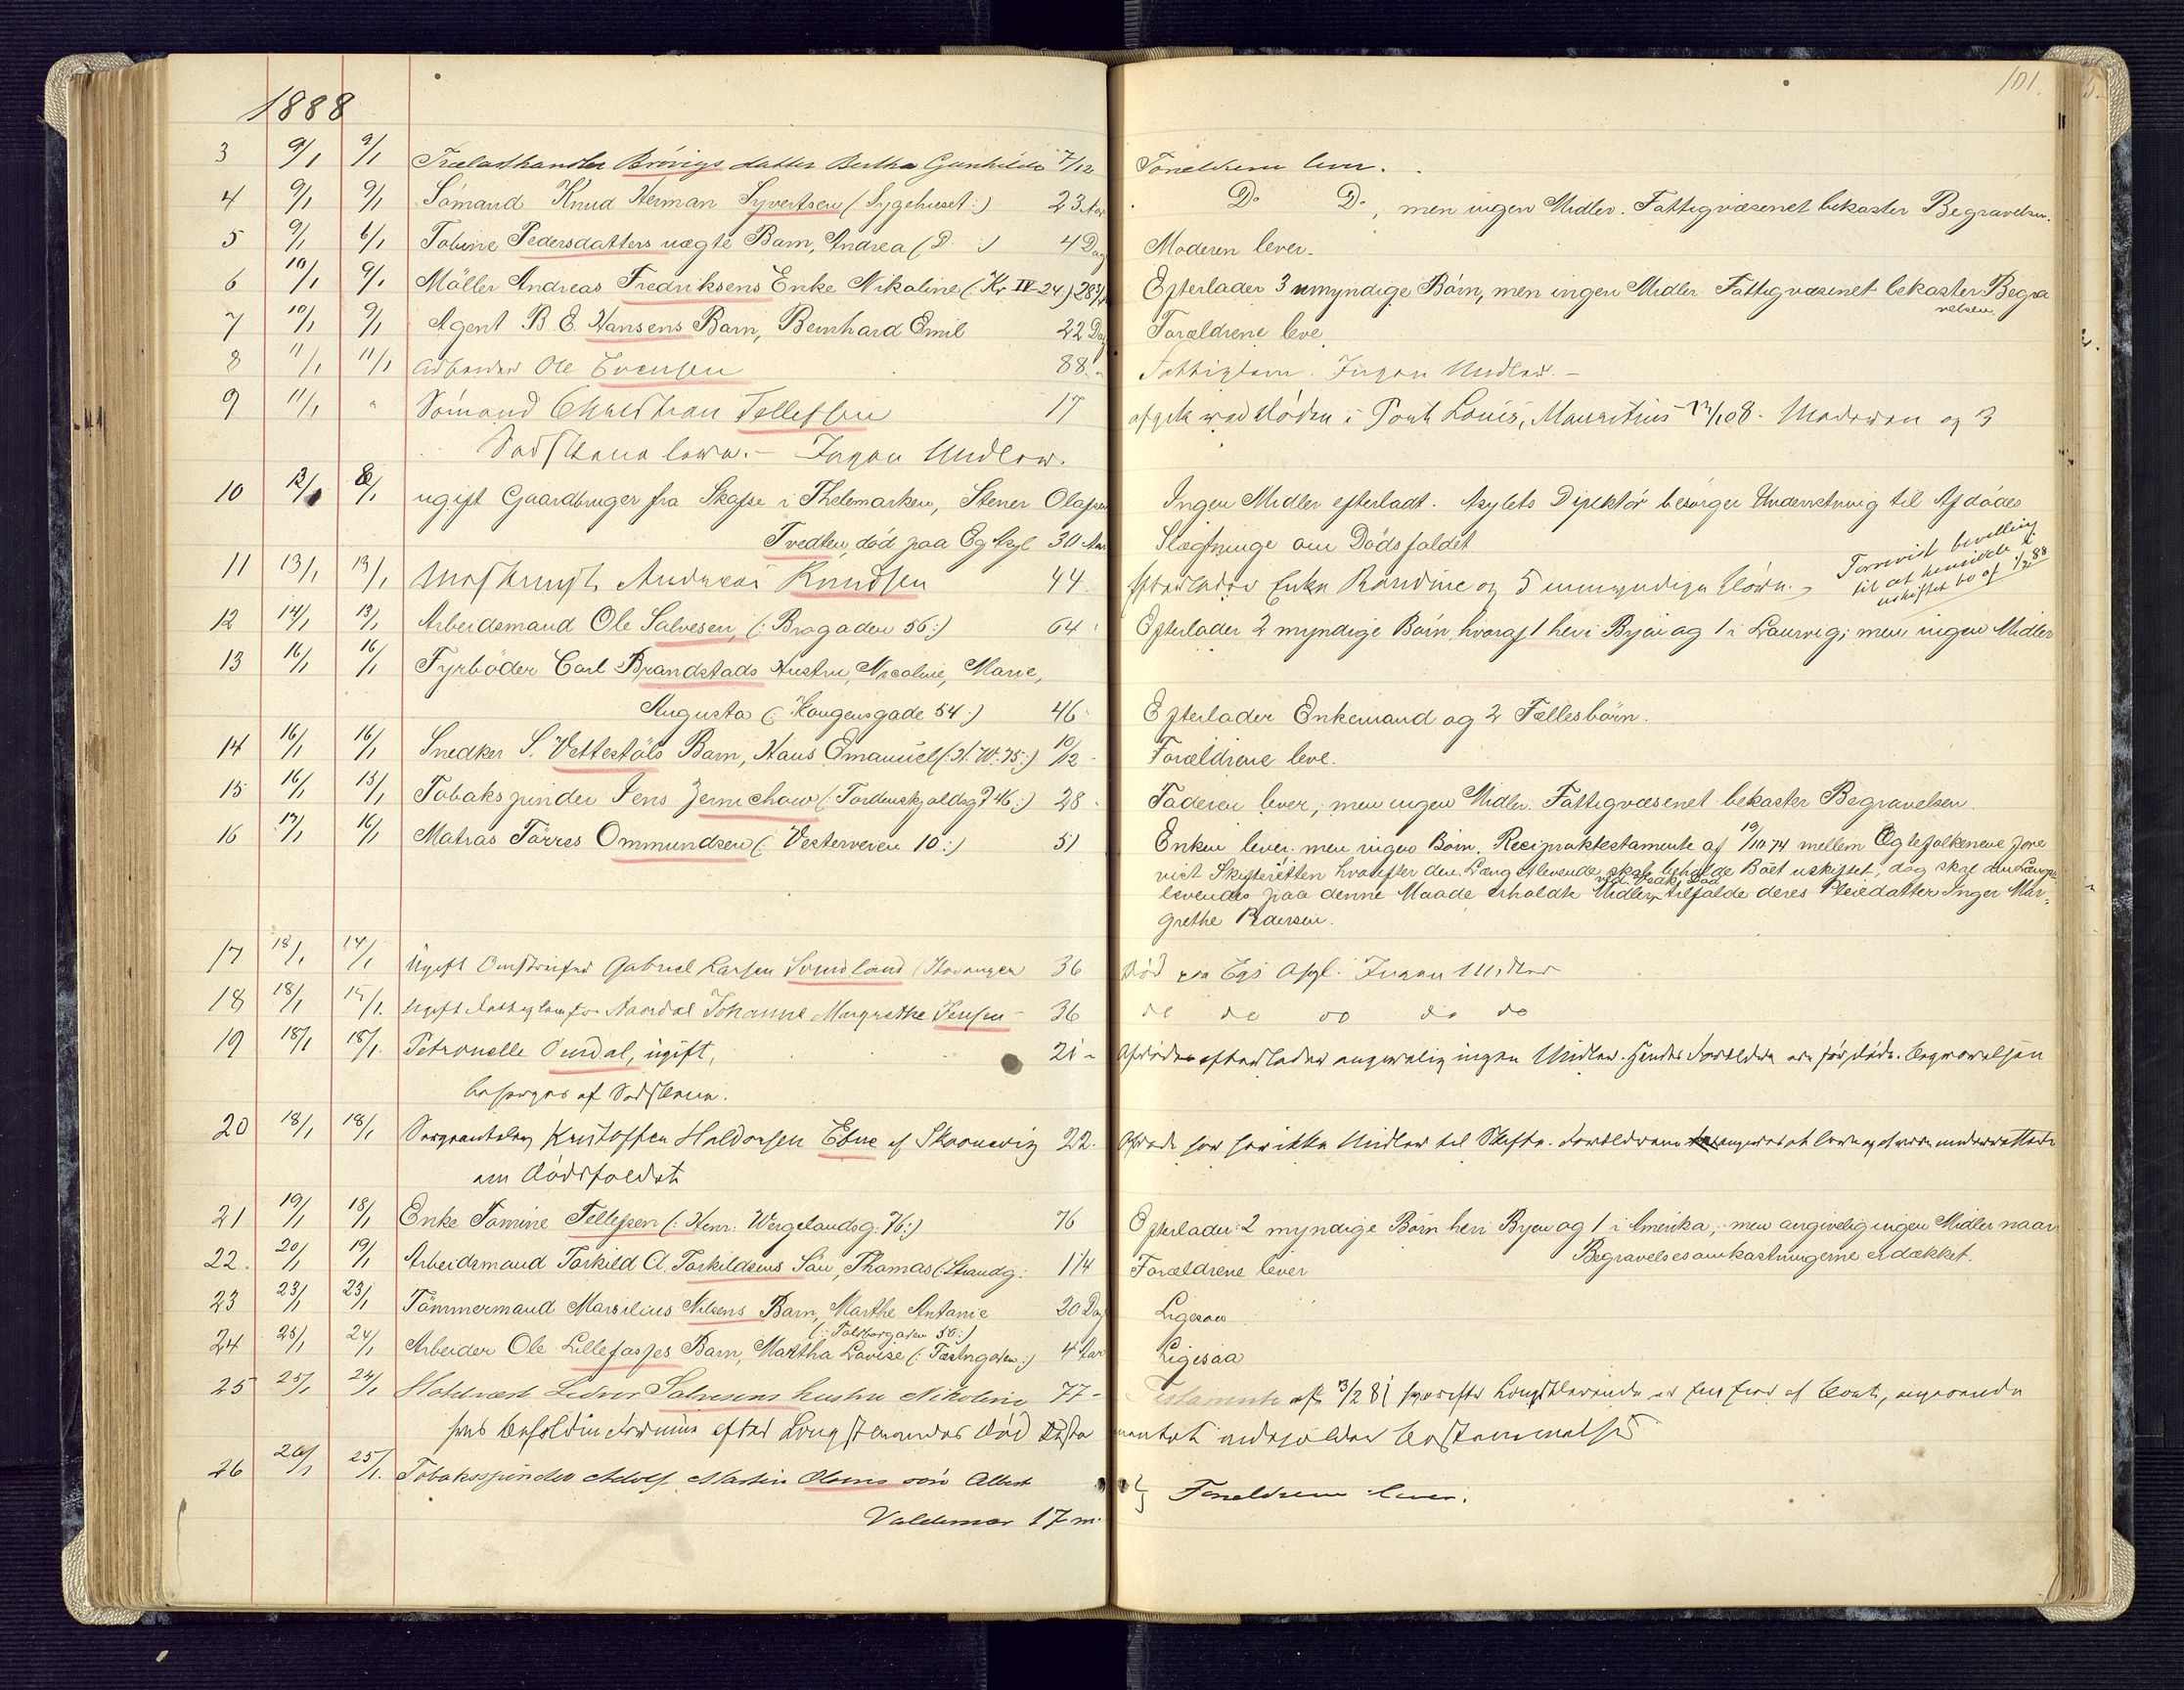 101.
1888
3 9/1 9/1 Trælasthandler Brövigs datter Bertha Gunhilda 7/12 Forældrene lever.
4 9/1 9/1 Sömand Knud Herman Syvertsen (Sygehuset:) 23 Aar Do Do, men ingen Midler. Fattigvæsenet bekoster Begravelsen.
5 9/1 6/1 Tobine Pedersdatters uægte Barn, Andrea (D :) 4 Dag Moderen lever.
6 10/1 9/1 Möller Andreas Fredriksens Enke Nikoline (: Kv IV-24.) Efterlader 3 umyndige Börn, men ingen Midler Fattigvæsenet bekoster Begra
velsen.
7 10/1 9/1 Agent B. E. Hansens Barn, Bernhard Emil 22 Dag Forældrene leve.
8 11/1 11/1 Arbeider Ole Evensen 88 - Fattiglem. Ingen Midler. -
9 11/1 " Sömand Christian Tellefsen 17 afgik ved Döden i Port Louis, Mauritius Moderen og 3
Sødskende lever. - Ingen Midler.
10 12/1 8/1 ugift Gaardbruger fra Skafse i Thelemarken, Stener Olafsen Ingen Midler efterladt. Asylets Direktör besörger Underretning til Afdödes
Tvedten, död paa Eg Asyl 30 Aar Slægtninge om Dödsfaldet.
11 13/1 13/1 Andreas Knudsen 44 efterlader Enke Randine og 5 umyndige Börn. - Forevist bevilling
til at hensidde i
uskiftet bo af 1/2 88
12 14/1 13/1 Arbeidsmand Ole Salvesen, (: Bragaden 56:) 64 Efterlader 2 myndige Börn, hvoraf 1 her i Byen og 1 i Laurvig; men ingen Midler
13 16/1 16/1 Fyrböder Carl Brandstads Hustru, Nicoline, Marie,
Augusta (: Kongensgade 54:) 46 Efterlader Enkemand og 2 Fællesbörn.
14 16/1 16/1 Snedker S. Vettestöls Barn, Hans Emanuel (: H. W. 75:) 10/12 Forældrene leve.
15 16/1 13/1 Tobakspinder Jens Zernichow (: Tordenskjoldsgd 46:) 28 Faderen lever, men ingen Midler. Fattigvæsenet bekoster Begravelsen.
16 17/1 16/1 Matros Törres Ommundsen (: Vesterveien 10:) 51 Enken lever, men ingen Börn. Reciproktestamente af 19/10 74 mellem Ægtefolkene fore
vist Skifteretten hvorefter den Længstlevende skal beholde Boet uskiftet, dog skal den Længst
levendes paa denne Maade erholdte Midler ved Vedk. Död tilfalde deres Pleiedatter Inger Mar-
grethe Pedersen.
17 18/1 14/1 Ugift Omstreifer Gabriel Larsen Sondland Stavanger 36 Död paa Egs Asyl. Ingen Midler
18 18/1 15/1. Ugift Fattiglem fra Johanne Margrethe Jensen - 36 do do do do do
19 18/1 18/1. Petronelle Omdal, ugift, 21 - Afdöde efterlader angivelig ingen Midler. Hendes Forældre ere før döde. Begravelsen
besørges af Sødskende.
20 18/1 18/1 Kristoffer Haldorsen Ebne af 22 - Afdöde har ikke Midler til Skifte. Forældrene angives at leve og at være underrettede
om Dödsfaldet
21 19/1 18/1 Enke Tomine Tellefsen (: Henr. Wergelandsg. 76:) 76 Efterlader 2 myndige Börn her i Byen og 1 i Amerika, men angivelig ingen Midler naar
Begravelsesomkostningerne er dækket.
22. 20/1 19/1 Arbeidsmand Torkild A. Torkildsens Sön, Thomas (: Strandg: 1 1/4 Forældrene lever
23 23/1 23/1 Tömmermand Marsilius Nilsens Barn, Marthe Antonie 20 Dag Ligesaa
24 25/1 24/1 Arbeider Ole Lillefosses Barn, Martha Lovise (: Fæstngaden:) 4 Aar Ligesaa
(: Toldbodgaden 50:)
25 25/1 24/1 Salvesens hustru Nikoline 77 - Testamente af 3/2 81 hvorefter Længstlevende af Boet, angaaende
efter Längstlevendes död Testa mentet indeholder bestemmelser
26 26/1 25/1. Tobakspinder Adolf Martin Olsens sön Albert
Valdemar 17 m. } Forældrene lever.